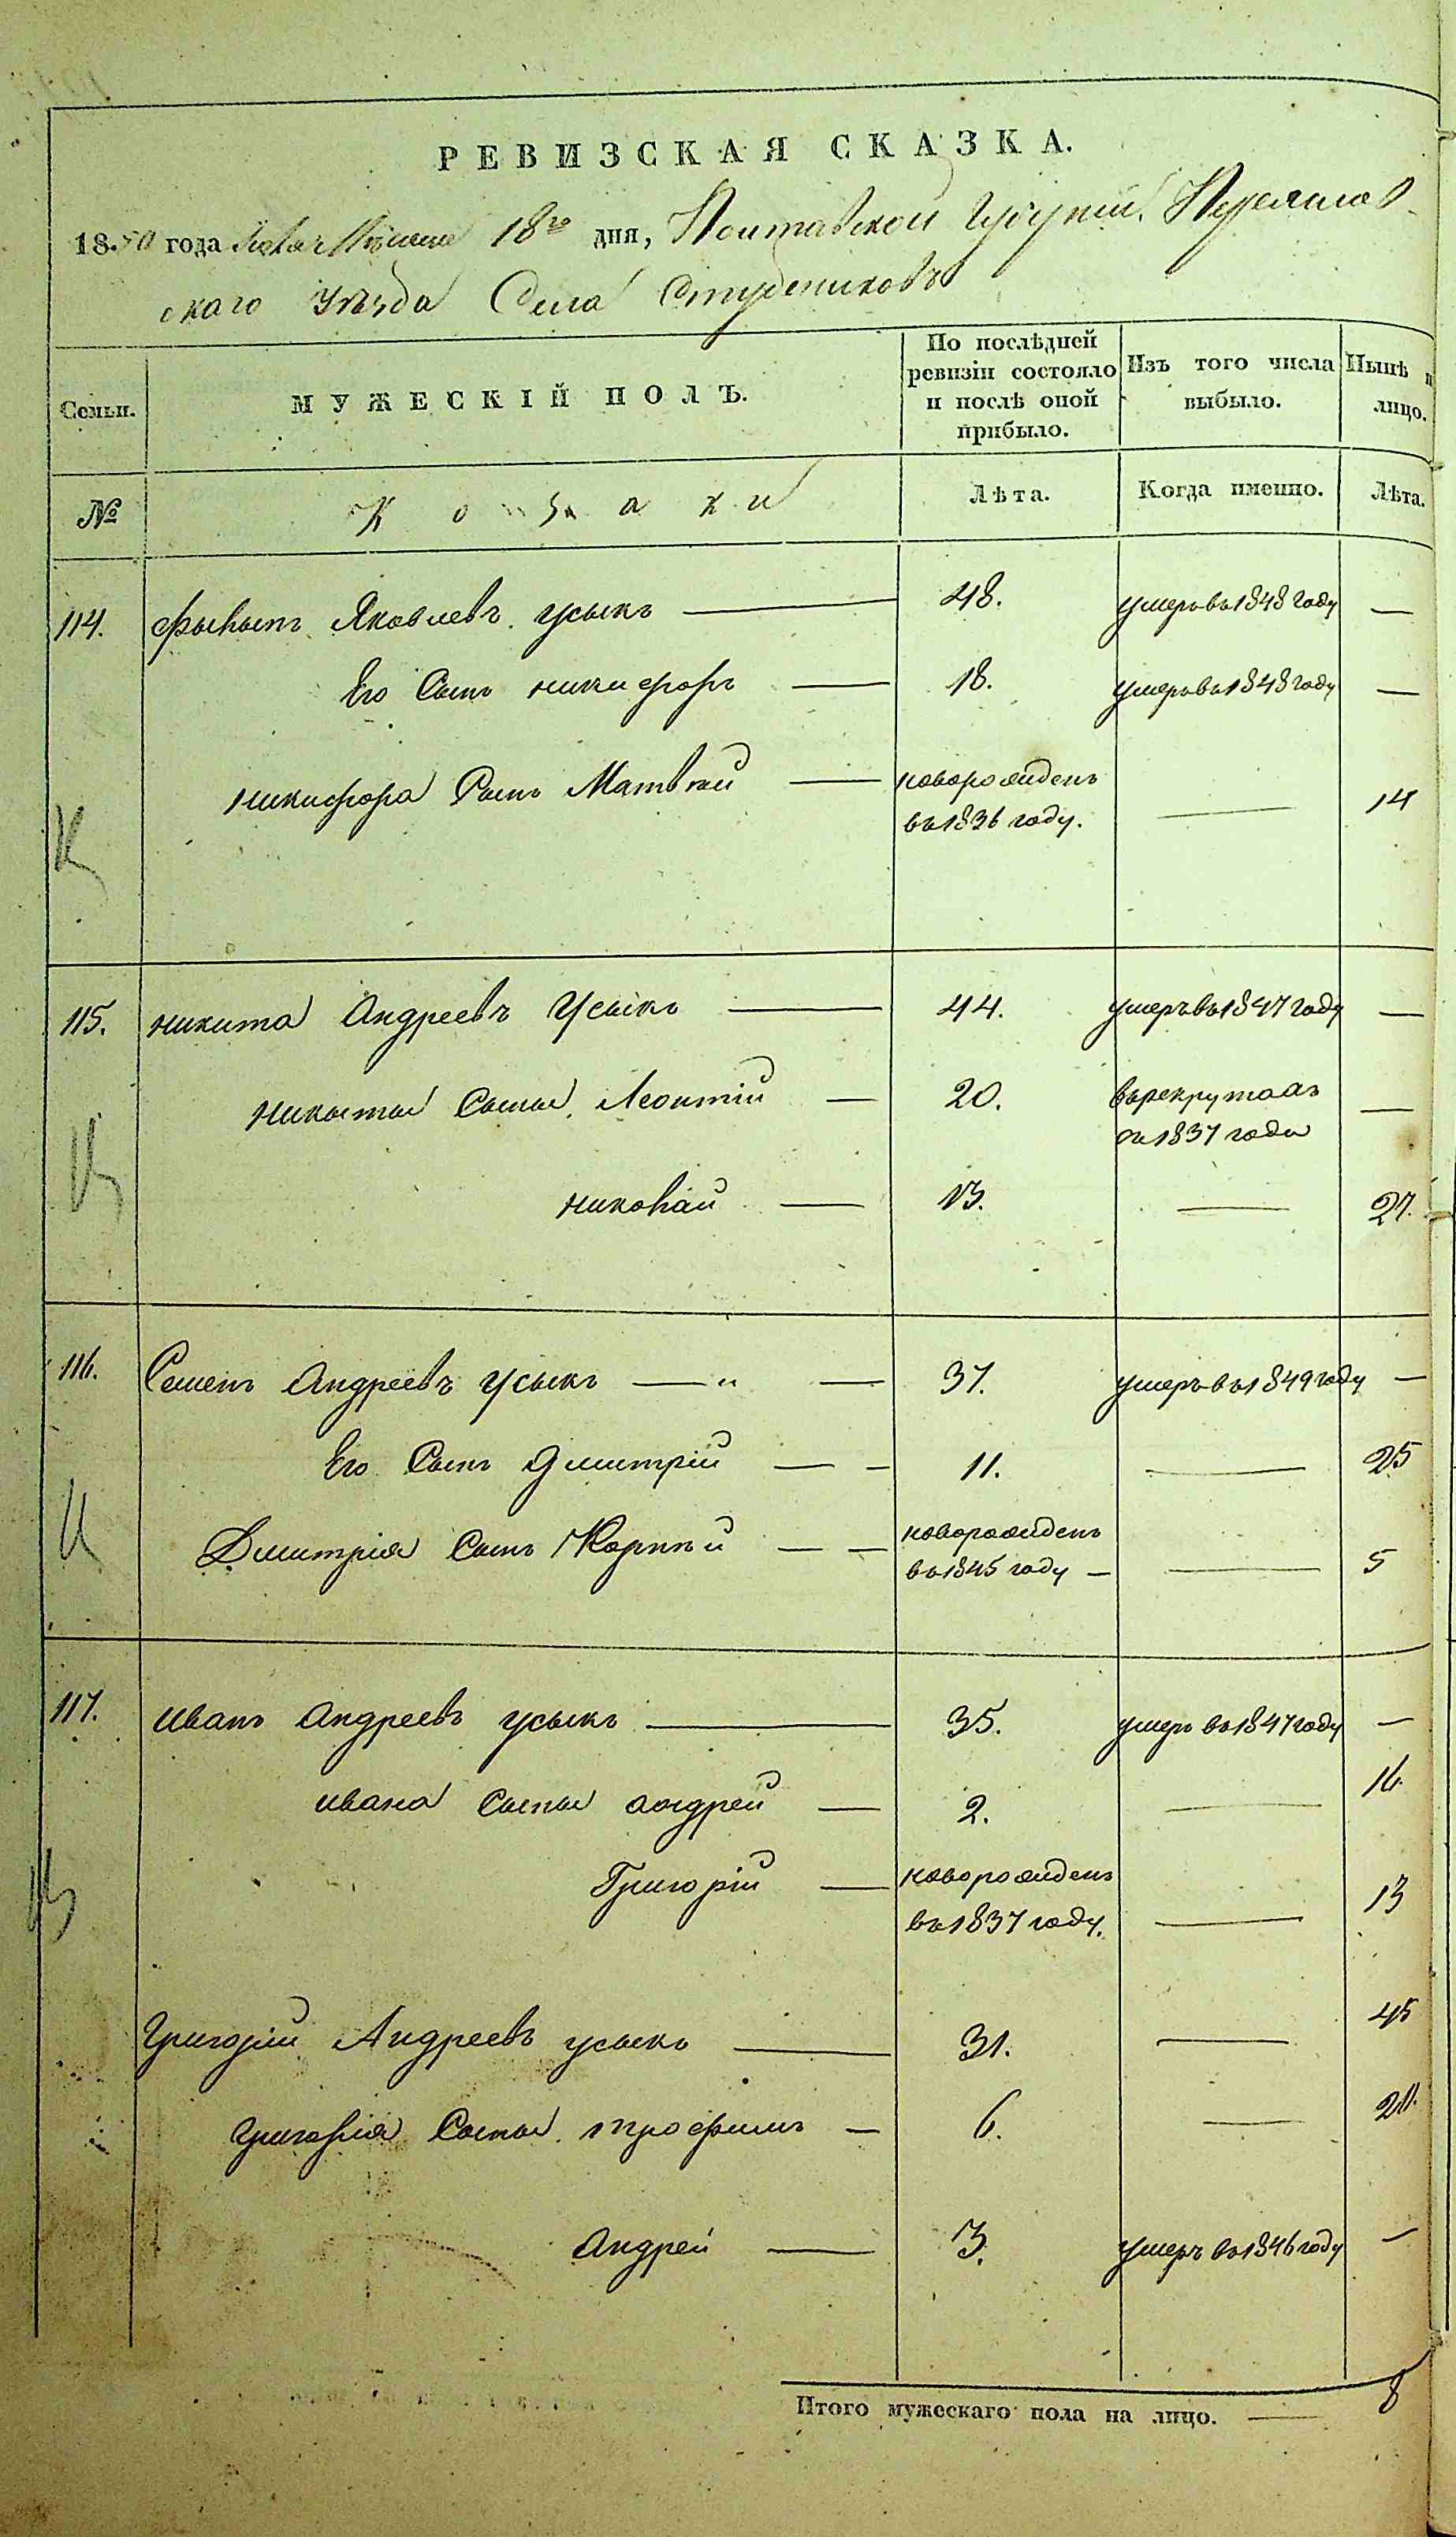 РЕВИЗСКАЯ СКАЗКА.
1850 года 18го дня, Полтавской Губернии, Переяслав-
скаго уѣзда Села Студениковъ
Семьи.
МУЖЕСКІЙ ПОЛЪ.
По послѣдней ревизіи состояло и послѣ оной прибыло.
Изъ того числа выбыло.
Нынѣ на лицо.
№
Козаки
Лѣта.
Когда именно.
Лѣта.
114. Яковлевъ усыкъ — 48. умеръ въ 1848 году —
Его Сынъ никифоръ — 18. умеръ въ 1848 году —
никифора Сынъ Матвѣй — новорожденъ въ 1836 году. — 14
115. никита Андреевъ Усыкъ — 44. умеръ въ 1847 году —
никиты Сыны Леонтій — 20. въ рекрутахъ съ 1837 года —
николай — 13. — 27.
116. Семенъ Андреевъ усыкъ — „ — 37. умеръ въ 1849 году —
Его Сынъ Дмитрій — — 11. — 25
Дмитрія Сынъ Корнѣй — — новорожденъ въ 1845 году — — 5
117. иванъ Андреевъ усыкъ — 35. умеръ въ 1847 году —
ивана Сыны андрей — 2. — 16.
Григорій — новорожденъ въ 1837 году. — 13
Григорій Андреевъ усыкъ — 31. — 45
Григорія Сыны трофимъ — 6. — 20.
Андрей — 3. умеръ въ 1846 году —
Итого мужескаго пола на лицо. — 8